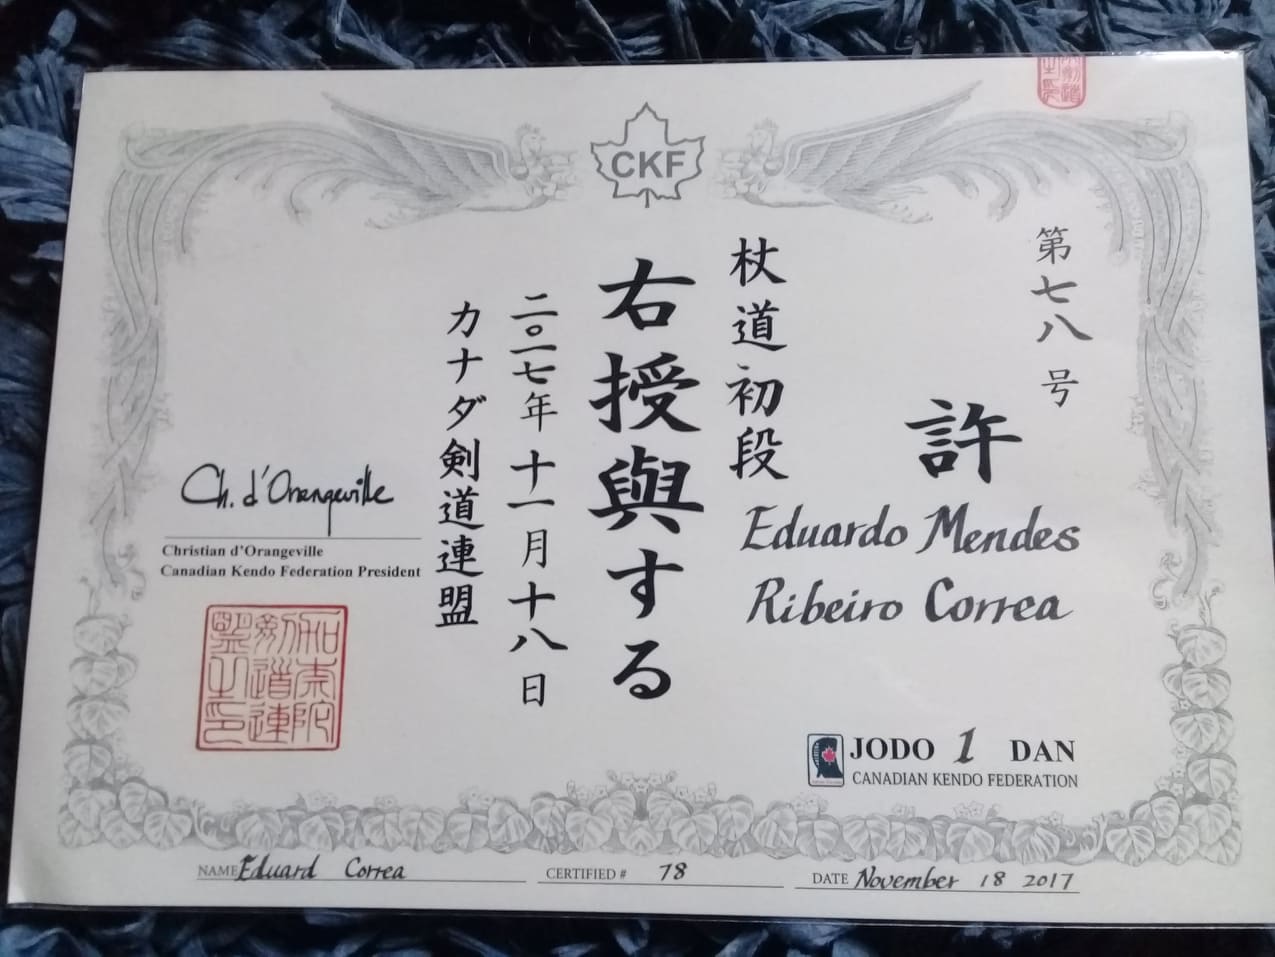 CKF
第七八号
許
Eduardo Mendes
Ribeiro Correa
杖道初段
右授與する
二〇一七年十一月十八日
カナダ剣道連盟
Ch. d'Orangeville
Christian d'Orangeville
Canadian Kendo Federation President
JODO 1 DAN
CANADIAN KENDO FEDERATION
NAME Eduard Correa
CERTIFIED # 78
DATE November 18 2017